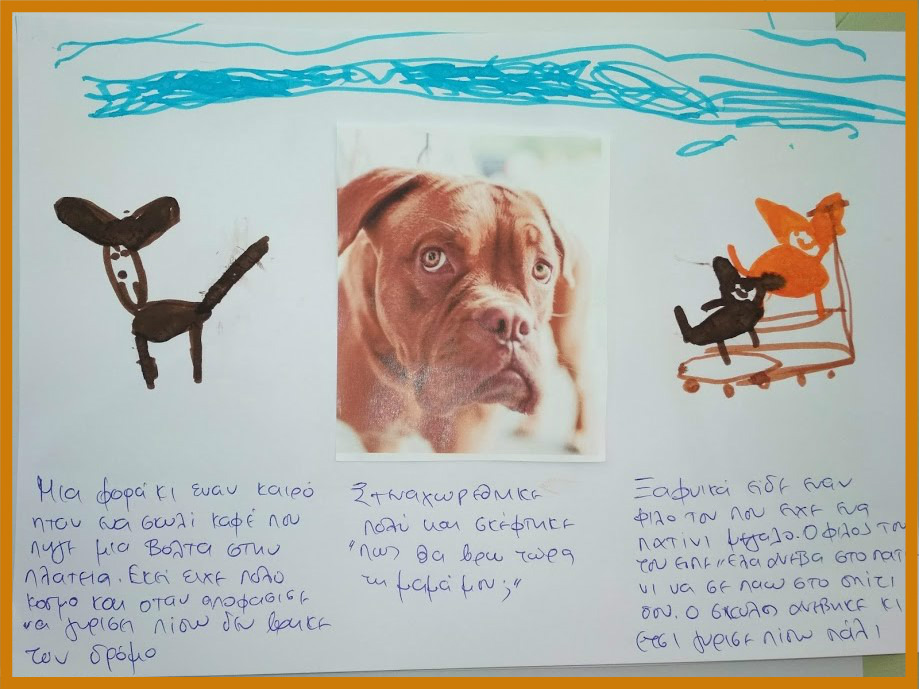 Μια φορά κι εναν καιρό
ηταν ενα σκυλί καφέ που
πηγε μια βολτα στην
πλατεια. Εκεί ειχε πολυ
κοσμο και οταν αποφασισε
να γυρίσει πίσω δεν βρηκε
τον δρόμο
Στεναχωρεθηκε
πολύ και σκέφτηκε
"πως θα βρω τώρα
τη μαμά μου;"
Ξαφνικά ειδε εναν
φιλο του που ειχε ενα
πατίνι μεγαλο. Ο φιλος του
του ειπε "ελα ανεβα στο πατι
νι να σε παω στο σπίτι
σου. Ο σκυλος ανεβηκε κι
ετσι γυρισε πίσω πάλι